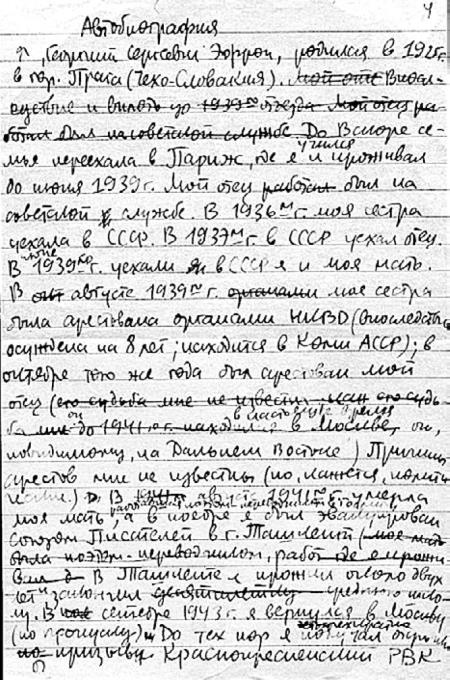 4
Автобиография
Я, Георгий Сергеевич Эфрон, родился в 1925г.
в гор. Прага (Чехо-Словакия). Мой отец Впосл-
едствие и вплоть до 1939го отъезда Мой отец ра-
ботал был на советской службе До Вскоре се-
мья переехала в Париж, где я учился и проживал
до июня 1939г. Мой отец работал был на
советской службе. В 1936м г. моя сестра
уехала в СССР. В 1937м г. в СССР уехал отец.
В июне 1939го г. уехали в СССР я и моя мать.
В августе 1939го г. органами моя сестра
была арестована органами НКВД (впоследств.
осуждена на 8 лет; находится в Коми АССР); в
октябре того же года был арестован мой
отец (его судьба мне не известна; его судь-
ба мне до 1941го г. находился он в Москве, в настоящее время он,
повидимому, на Дальнем Востоке) Причины
арестов мне не известны (но, кажется, полити-
ческие.) В августе 1941го г. умерла
моя мать, а в ноябре я был эвакуирован
Союзом Писателей в г. Ташкент (моя мать
была поэтом-переводчиком, где я прожи-
вал В Ташкенте я прожил около двух
лет и закончил десятилетку среднюю шко-
лу. В сентябре 1943г. я вернулся в Москву
(по пропуску) До тех пор я получал
по призыву Краснопресненский РВК